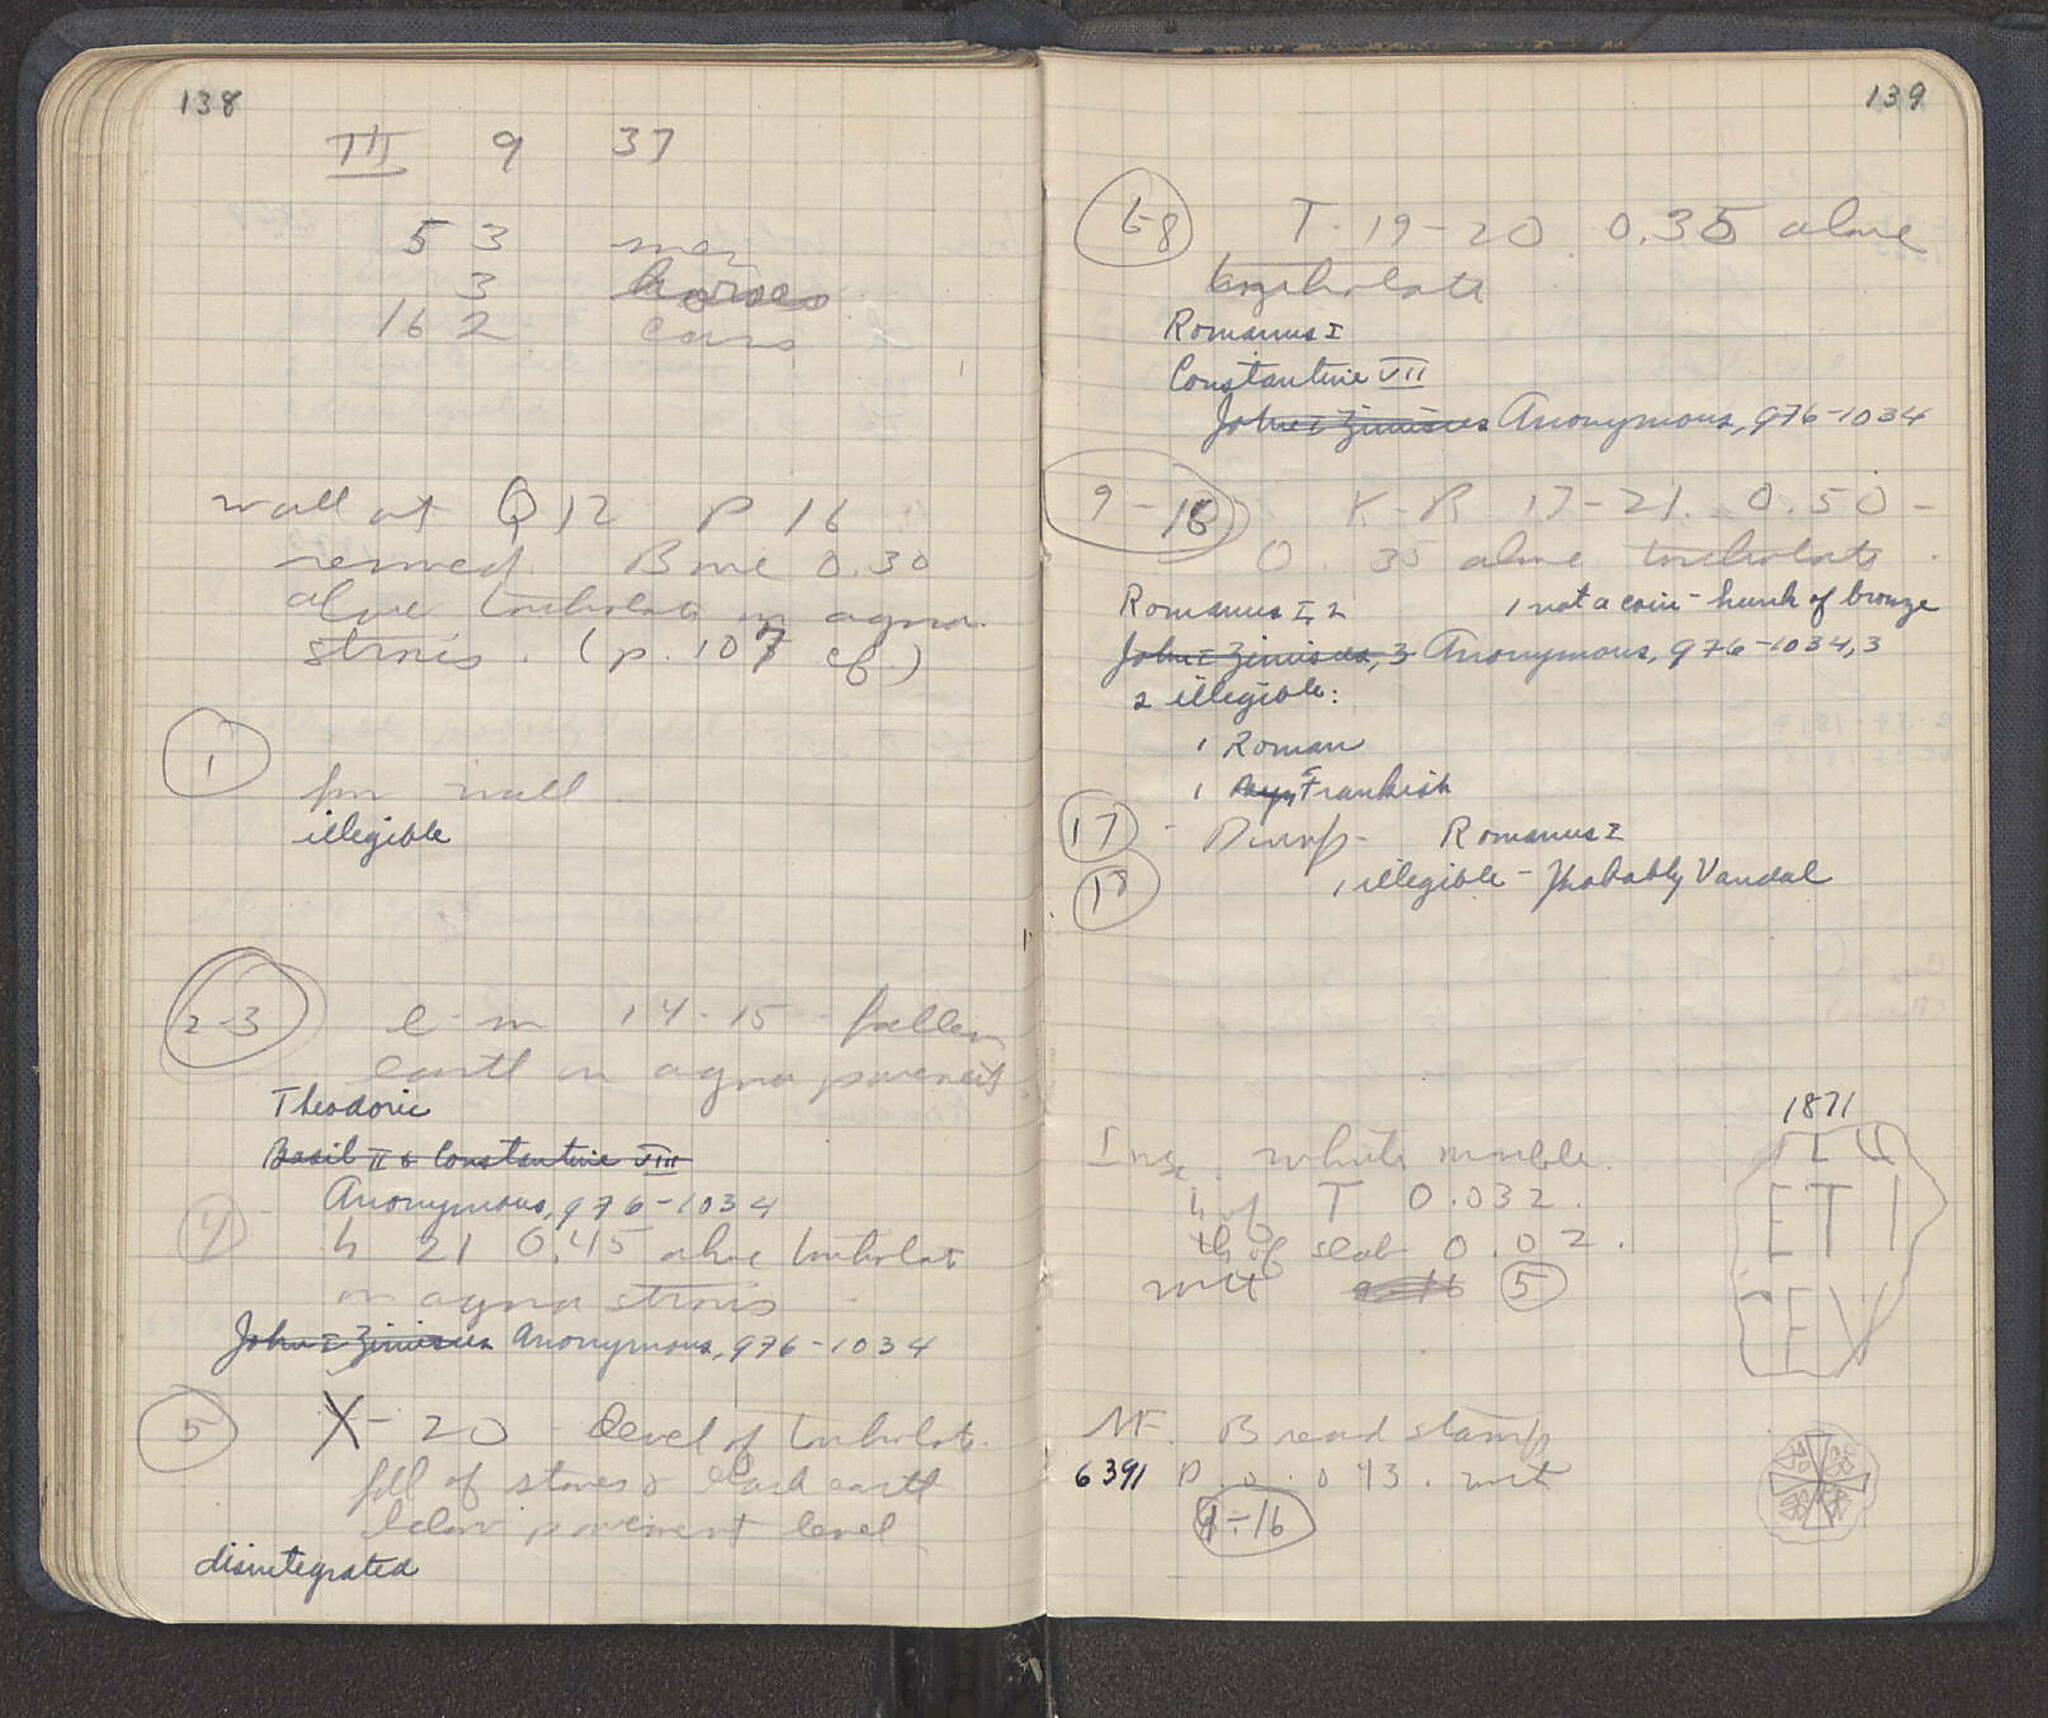 138
III 9 37
53 men
3 horses
162 cars
wall at Q12 P 16
removed. Bone 0.30
above toicholata in agora
stroses. (p. 107 cf.)
1
fm wall
illegible
2-3 e-m 14-15 - fallen
earth on agora pavement
Theodoric
Basil II & Constantine VIII
Anonymous, 976-1034
4 h 21 0.45 above
on agora
John I Zimisces Anonymous, 976-1034
5 X-20 - level of
full of stones & dark earth
below pavement level
disintegrated
139
6-8 T. 19-20 0.35 above
Romanus I
Constantine VII
John I Zimisces Anonymous, 976-1034
9-16 K-R 17-21. 0.50-
0.35 above
Romanus I, 2 1 not a coin - hunk of bronze
John I Zimisces, 3 Anonymous, 976-1034, 3
2 illegible:
1 Roman
1 Byz Frankish
17 - Dump - Romanus I
18 1 illegible - Probably Vandal
1871
Insc. white marble.
h of T 0.032.
th of slab 0.02.
with 5
ETI
MF. Bread stamp
6391 D. 0.043. with
9-16